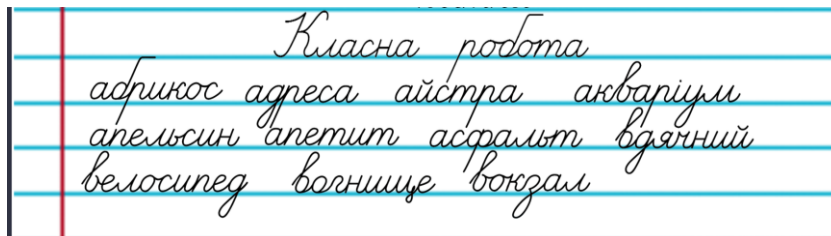 Класна робота
абрикос адреса айстра акваріум
апельсин апетит асфальт вдячний
велосипед вогнище вокзал